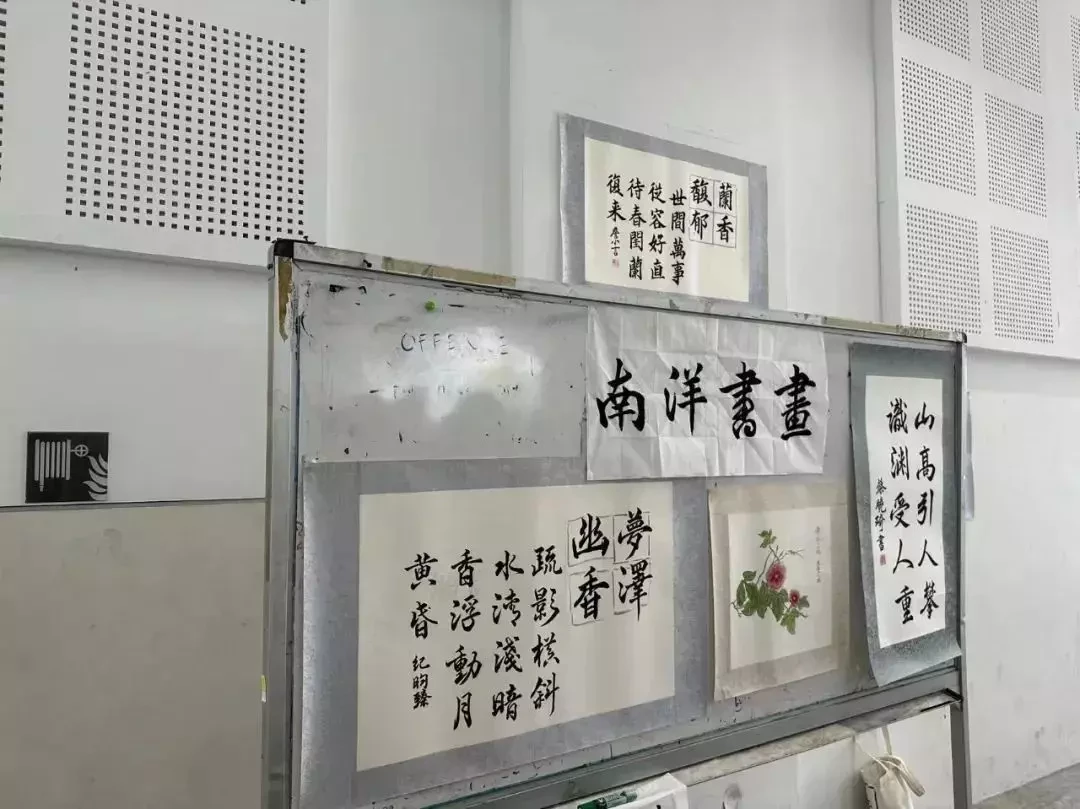 蘭香
馥郁
世間萬事
從容好直
待春閏蘭
復来
南洋書畫
夢澤
幽香
疏影横斜
水清淺暗
香浮動月
黄昏
紀昀臻
山高引人攀
識渊受人重